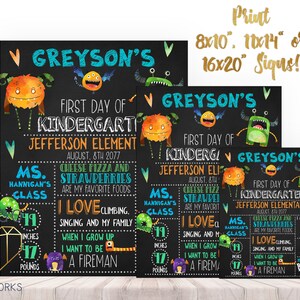 Print
8x10", 11x14" o
16x20" Signs!
GREYSON'S
FIRST DAY OF
KINDERGARTE
JEFFERSON ELEMENT
AUGUST, 8TH 2077
MS.
HANNIGAN'S
CLASS
CHEESE PIZZA AND
STRAWBERRIES
ARE MY FAVORITE FOODS
I LOVE CLIMBING,
SINGING AND MY FAMILY
WHEN I GROW UP
I WANT TO BE
A FIREMAN
INCHES
17
POUNDS
GREYSON'S
FIRST DAY OF
KINDERGA
JEFFERSON ELEM
AUGUST, 8TH 2077
MS.
HANNIGAN'S
CLASS
CHEESE PIZZA AND
STRAWBERRIES
ARE MY FAVORITE FOODS
I LOVE CLIMBING,
SINGING AND MY FAMILY
WHEN I GROW UP
I WANT TO BE
A FIREMAN
17
POUNDS
GREYSON'S
FIRST DAY OF
KINDERGARTEN
JEFFERSON ELEMENTA
MS.
HANNIGAN'S
CLASS
STRAWBERRIES
I LOVE
SINGING AND MY FAMILY
WHEN I GROW UP
I WANT TO BE
A FIREMAN
17
ORKS